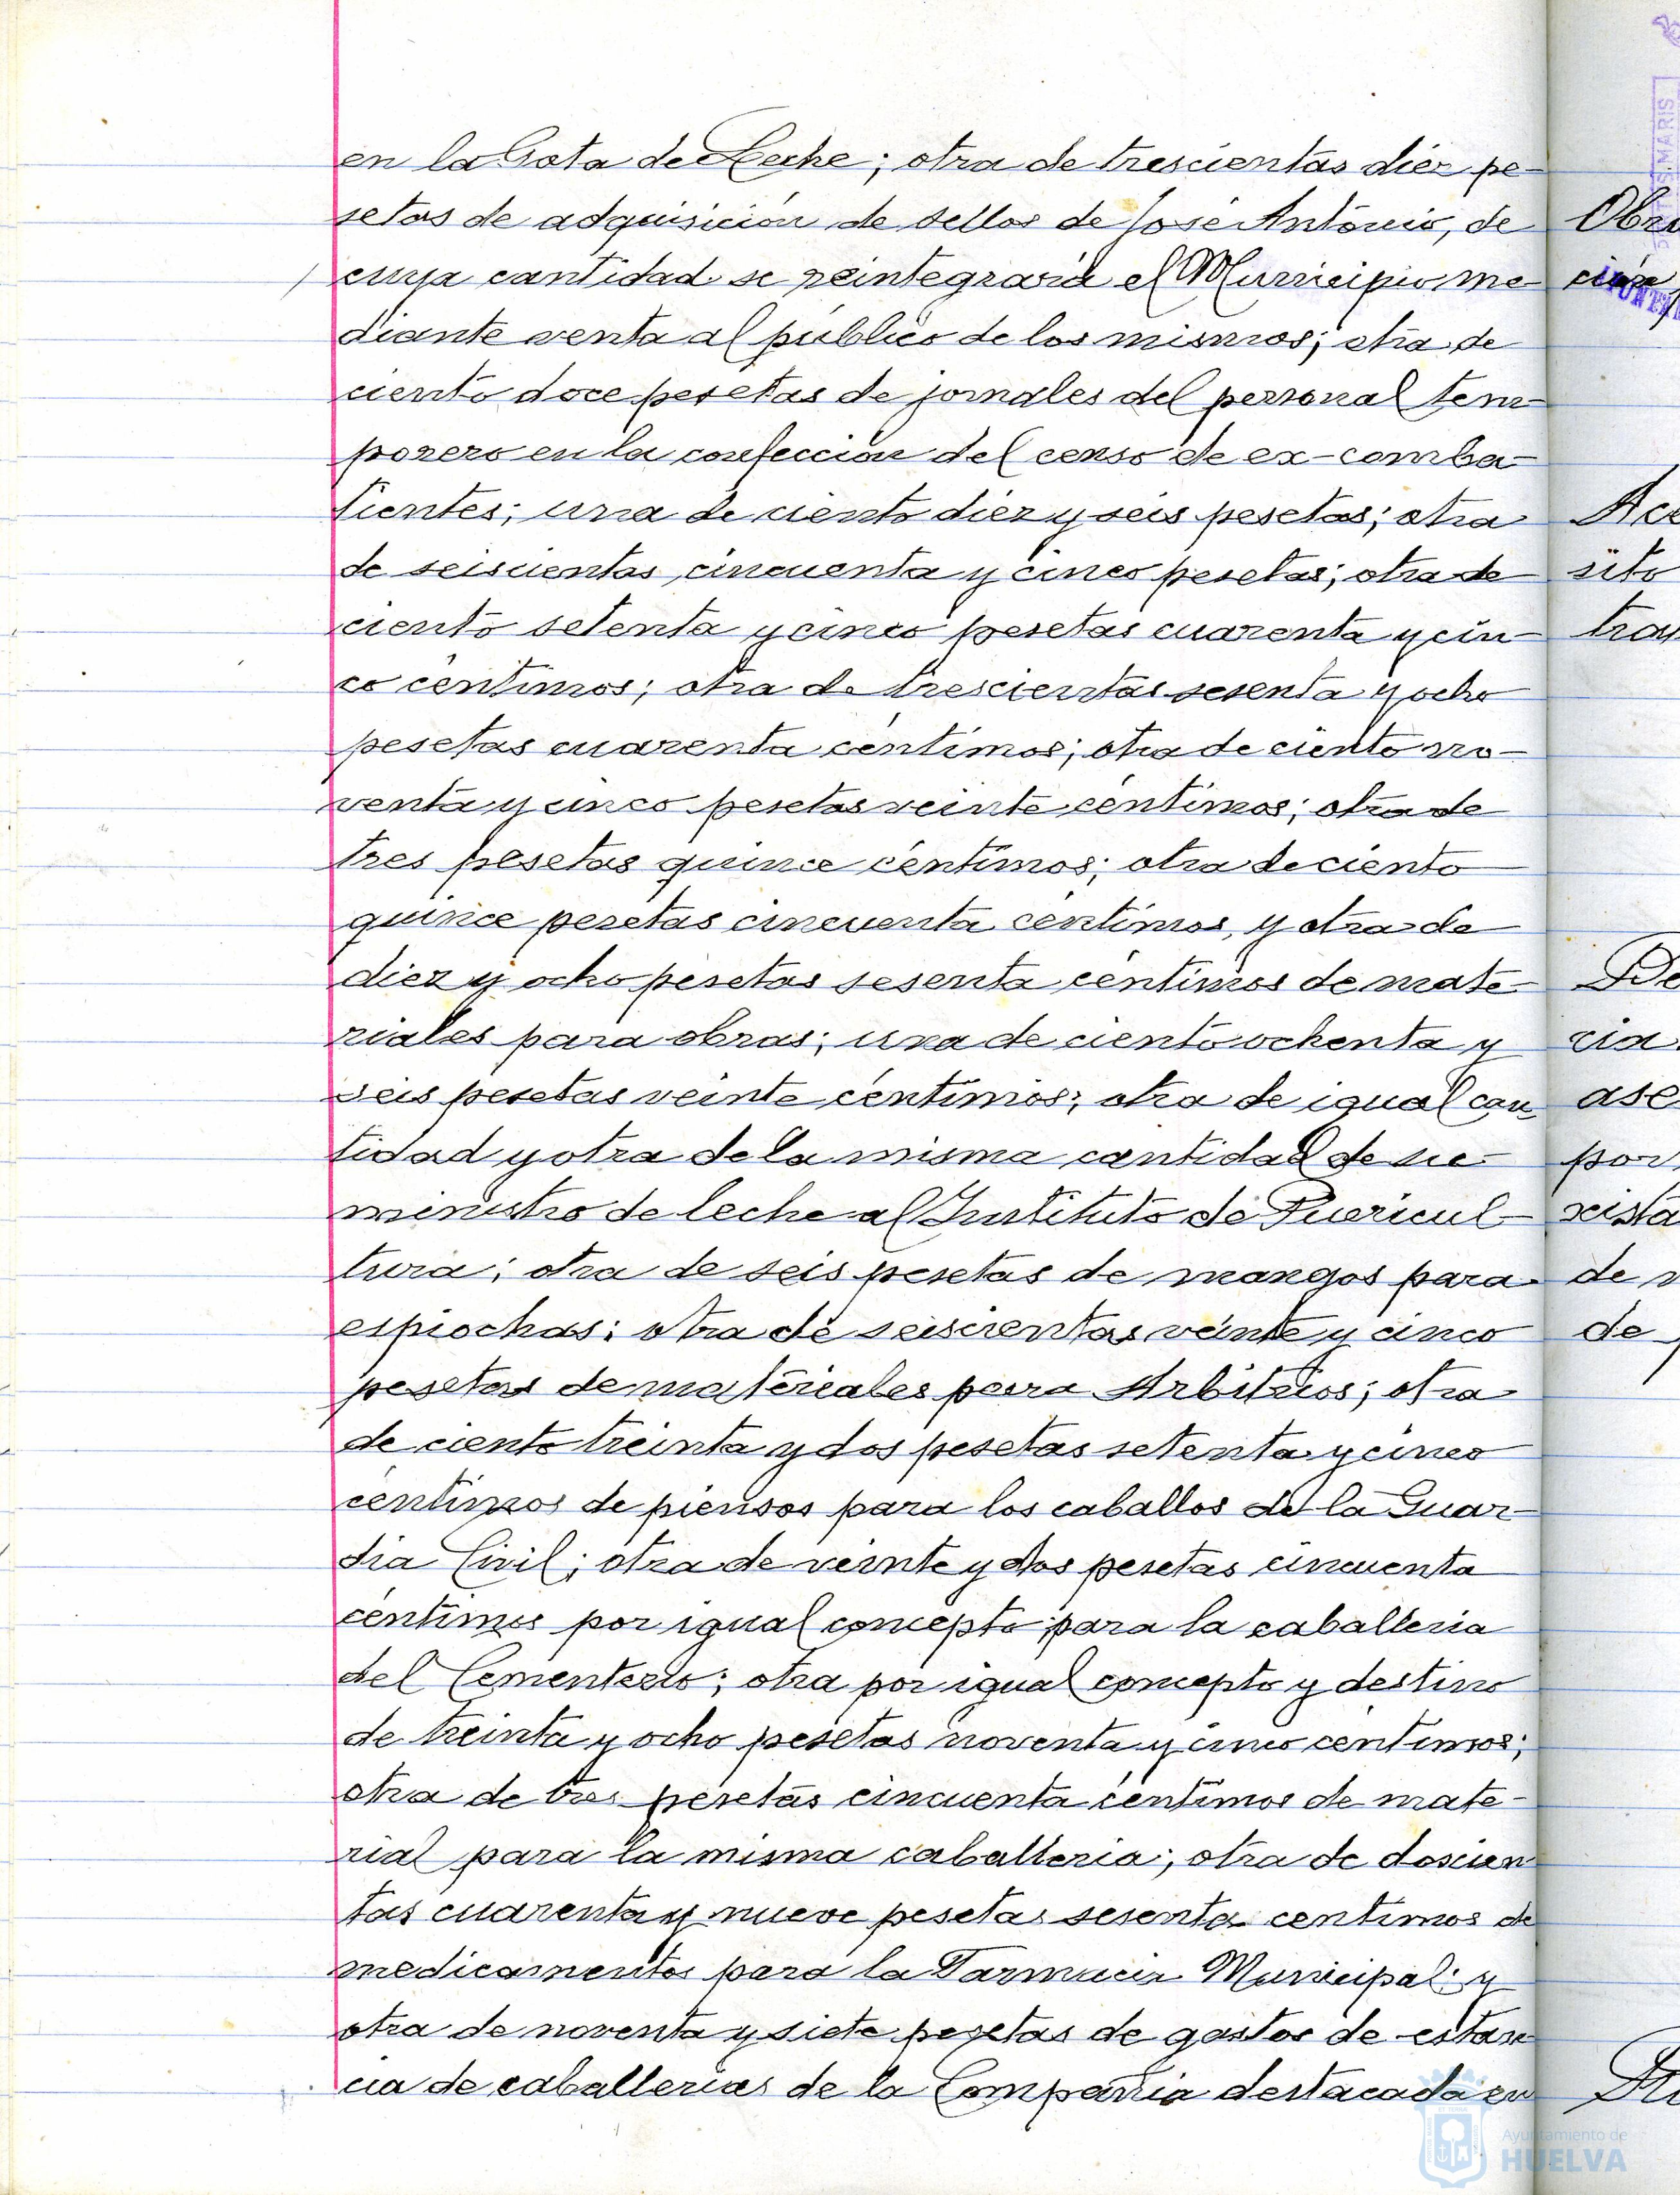 en la Gota de Leche; otra de trescientas diez pe-
setas de adquisición de sellos de José António, de
cuya cantidad se reintegrará el Municipio me-
diante venta al público de los mismos; otra de
ciento doce pesetas de jornales del personal tem-
porero en la confección del censo de ex-comba-
tientes; una de ciento diez y seis pesetas; otra
de seiscientas cincuenta y cinco pesetas; otra de
ciento setenta y cinco pesetas cuarenta y cin-
co céntimos; otra de trescientas sesenta y ocho
pesetas cuarenta céntimos; otra de ciento no-
venta y cinco pesetas veinte céntimos; otra de
tres pesetas quince céntimos; otra de ciento
quince pesetas cincuenta céntimos, y otra de
diez y ocho pesetas sesenta céntimos de mate-
riales para obras; una de ciento ochenta y
seis pesetas veinte céntimos; otra de igual can-
tidad y otra de la misma cantidad de su-
ministro de leche al Instituto de Puericul-
tura; otra de seis pesetas de mangos para
espiochas; otra de seiscientas veinte y cinco
pesetas de materiales para Arbitrios; otra
de ciento treinta y dos pesetas setenta y cinco
céntimos de piensos para los caballos de la Guar-
dia Civil; otra de veinte y dos pesetas cincuenta
céntimos por igual concepto para la caballeria
del Cementerio; otra por igual concepto y destino
de treinta y ocho pesetas noventa y cinco centimos;
otra de tres pesetas cincuenta céntimos de mate-
rial para la misma caballeria; otra de doscien
tas cuarenta y nueve pesetas sesenta centimos de
medicamentos para la Farmacia Municipal; y
otra de noventa y siete pesetas de gastos de estan
cia de caballerias de la Compañia destacada en
Ayuntamiento de
HUELVA